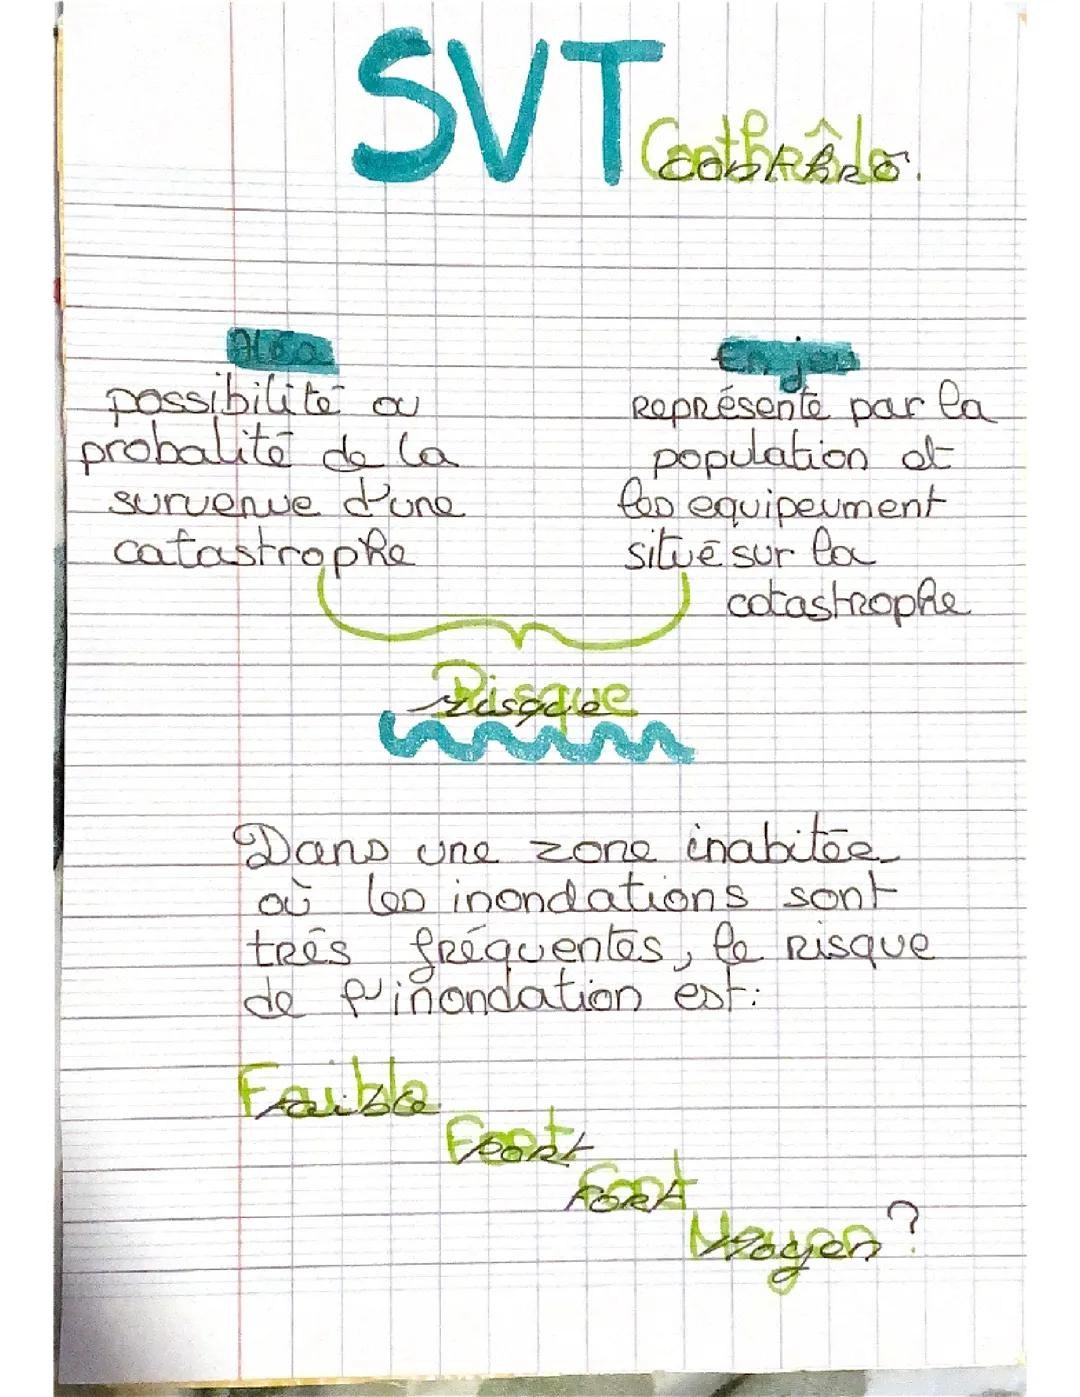 SVT Contrôle
Aléa
possibilité ou
probalité de la
survenue d'une
catastrophe
Enjeu
Représenté par la
population et
les equipeument
situé sur la
catastrophe
Risque
Dans une zone inabitée
où les inondations sont
trés fréquentes, le risque
de l'inondation est:
Faible
Fort
Fort
Moyen?